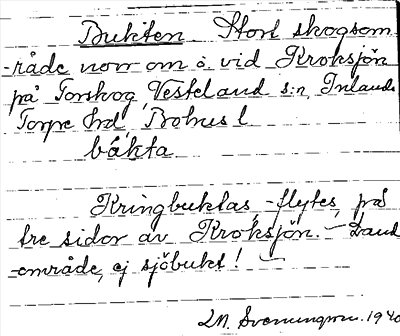 Bukten Stort skogsom
-råde norr om o. vid Kroksjön
på Torskog, Vesterland s:n, Inlands
Torpe hrd, Bohus l
båkta
Kringbuktas, -flytes, på
tre sidor av Kroksjön. – Land
-område, ej sjöbukt! –
1940